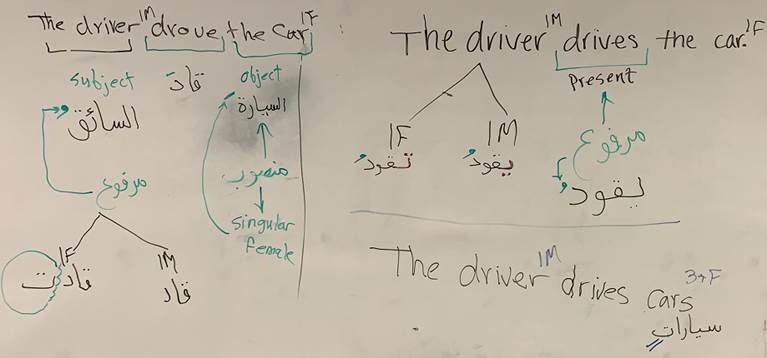 1M 1F
The driver drove the car
subject قادَ object
السائقُ السيارةَ
مرفوع منصوب
singular
female
1F 1M
قادت قاد
1M 1F
The driver drives the car.
present
1F 1M مرفوع
تقودُ يقودُ يقودُ
1M 3+F
The driver drives cars
سيارات